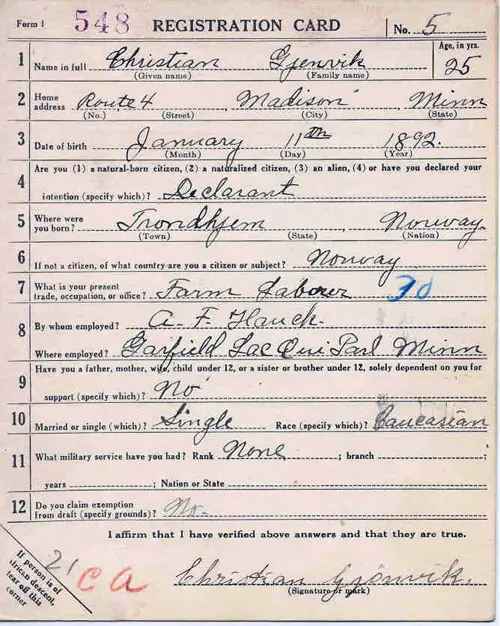 Form 1 548 REGISTRATION CARD No. 5
1 Name in full Christian Gjenvik Age, in yrs. 25
(Given name) (Family name)
2 Home address Route 4 Madison Minn
(No.) (Street) (City) (State)
3 Date of birth January 11th 1892.
(Month) (Day) (Year)
Are you (1) a natural-born citizen, (2) a naturalized citizen, (3) an alien, (4) or have you declared your
4 intention (specify which)? Declarant
5 Where were you born? Trondhjem Norway
(Town) (State) (Nation)
6 If not a citizen, of what country are you a citizen or subject? Norway
7 What is your present trade, occupation, or office? Farm Laborer 30
8 By whom employed? A. F. Hauck
Where employed? Garfield Lac Qui Parl Minn
Have you a father, mother, wife, child under 12, or a sister or brother under 12, solely dependent on you for
9 support (specify which)? No
10 Married or single (which)? Single Race (specify which)? Caucasian
11 What military service have you had? Rank None ; branch ;
years ; Nation or State
12 Do you claim exemption from draft (specify grounds)? No.
I affirm that I have verified above answers and that they are true.
If person is of
African descent,
tear off this
corner
21 CA
Christian Gjönvik.
(Signature or mark)